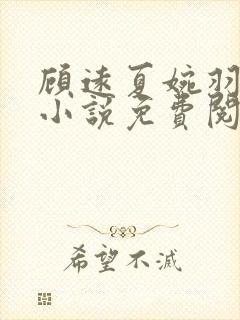 顾远夏婉羽
小说免费阅
希望不滅